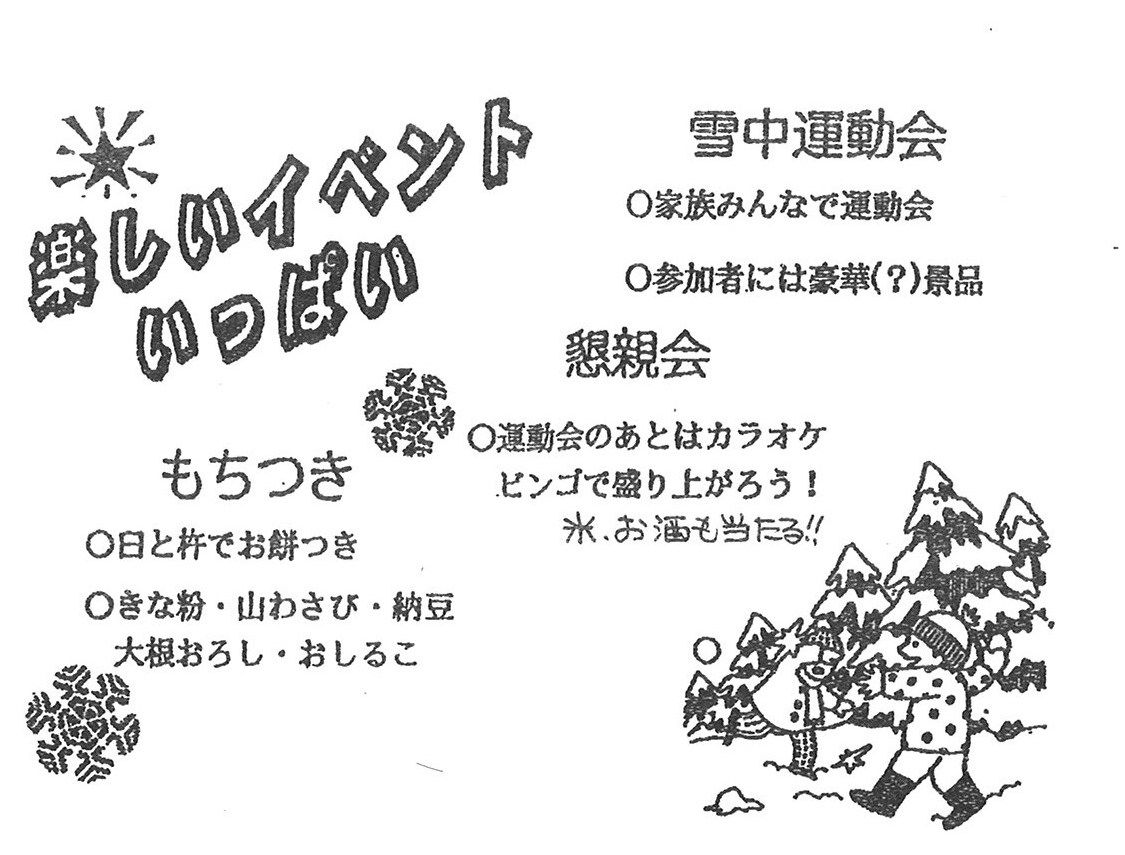 楽しいイベント
いっぱい
雪中運動会
○家族みんなで運動会
○参加者には豪華(?)景品
懇親会
○運動会のあとはカラオケ
ビンゴで盛り上がろう!
米、お酒も当たる!!
もちつき
○臼と杵でお餅つき
○きな粉・山わさび・納豆
大根おろし・おしるこ